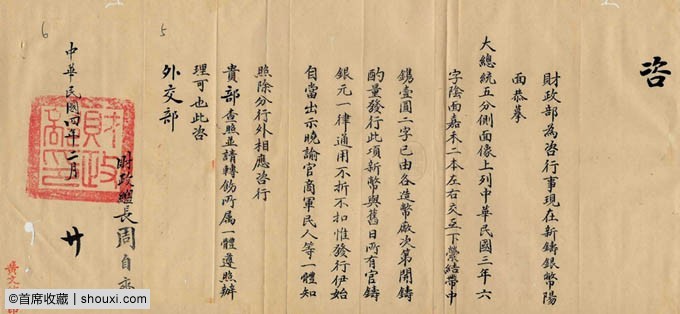 咨
財政部為咨行事現在新鑄銀幣陽
面恭摹
大總統五分側面像上列中華民國三年六
字陰面嘉禾二本左右交互下縈結帶中
鐫壹圓二字已由各造幣廠次第開鑄
酌量發行此項新幣與舊日所有官鑄
銀元一律通用不折不扣惟發行伊始
自當出示曉諭官商軍民人等一體知
照除分行外相應咨行
貴部查照並請轉飭所屬一體遵照辦
理可也此咨
外交部
5
財政總長周自齊
中華民國四年二月 廿
財政部印
6
黃文
©首席收藏 | shouxi.com